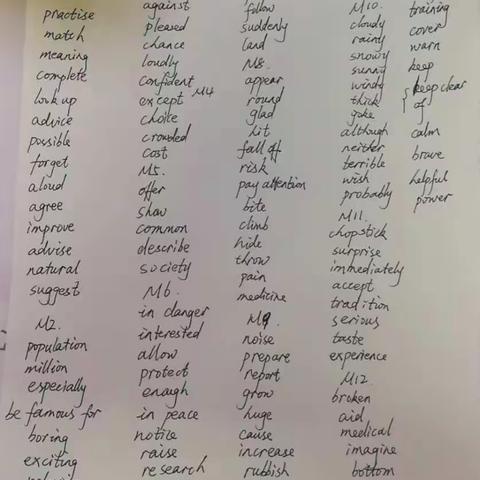 practise
match
meaning
complete
look up
advice
possible
forget
aloud
agree
improve
advise
natural
suggest
M2.
population
million
especially
be famous for
boring
exciting
against
pleased
chance
loudly
confident
except M4
choice
crowded
cost
M5.
offer
show
common
describe
society
M6.
in danger
interested
allow
protect
enough
in peace
notice
raise
research
follow
suddenly
land
M8.
appear
round
glad
hit
fall off
risk
pay attention
bite
climb
hide
throw
pain
medicine
M9.
noise
prepare
report
grow
huge
cause
increase
rubbish
M10.
cloudy
rainy
snowy
sunny
windy
thick
joke
although
neither
terrible
wish
probably
M11.
chopstick
surprise
immediately
accept
tradition
serious
taste
experience
M12
broken
aid
medical
imagine
bottom
training
cover
warn
keep
keep clear
of
calm
brave
helpful
power